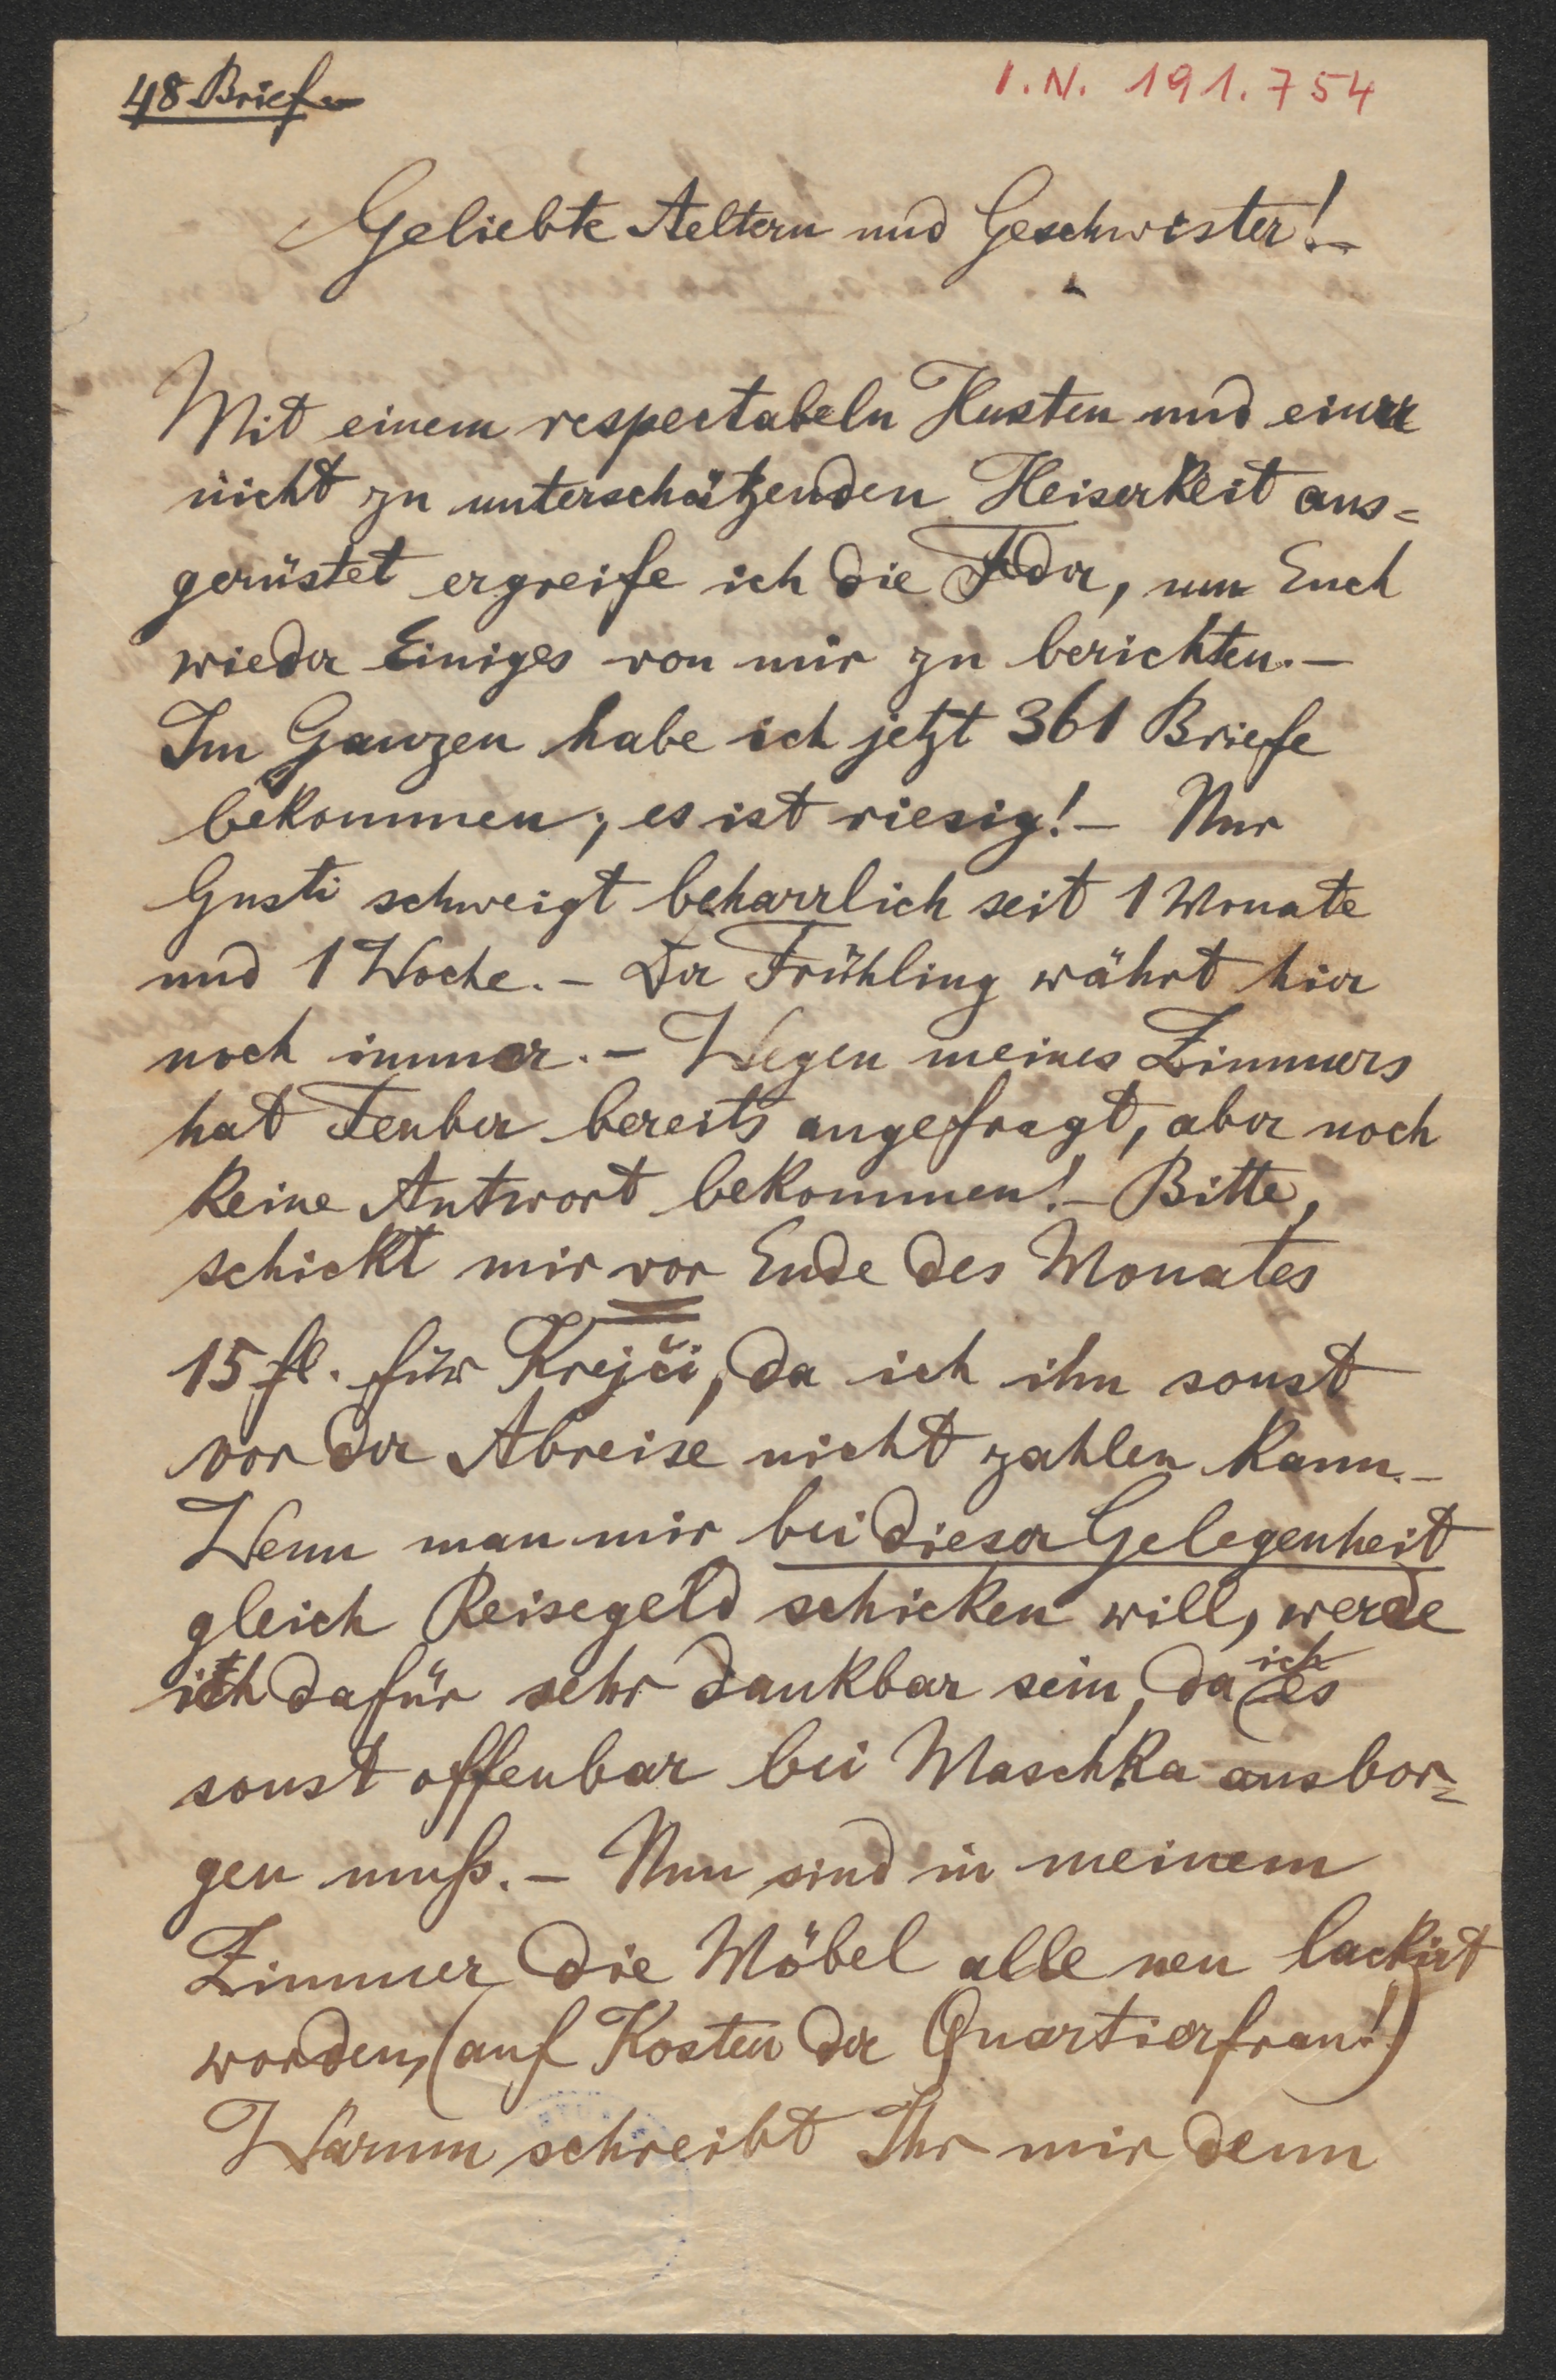 48. Brief
I. N. 191.754
Geliebte Aeltern und Geschwister! –
Mit einem respectabeln Husten und einer
nicht zu unterschätzenden Heiserkeit aus=
gerüstet ergreife ich die Feder, um Euch
wieder Einiges von mir zu berichten. –
Im Ganzen habe ich jetzt 361 Briefe
bekommen; es ist riesig! – Nur
Gusti schweigt beharrlich seit 1 Monate
und 1 Woche. – Der Frühling währt hier
noch immer. – Wegen meines Zimmers
hat Teuber bereits angefragt, aber noch
keine Antwort bekommen! – Bitte,
schickt mir vor Ende des Monates
15 fl. für Krejči, da ich ihn sonst
vor der Abreise nicht zahlen kann. –
Wenn man mir bei dieser Gelegenheit
gleich Reisegeld schicken will, werde
ich dafür sehr dankbar sein, da ich es
sonst offenbar bei Maschka ausbor=
gen muß. – Nun sind in meinem
Zimmer die Möbel alle neu lackirt
worden, (auf Kosten der Quartierfrau!)
Warum schreibt Ihr mir denn